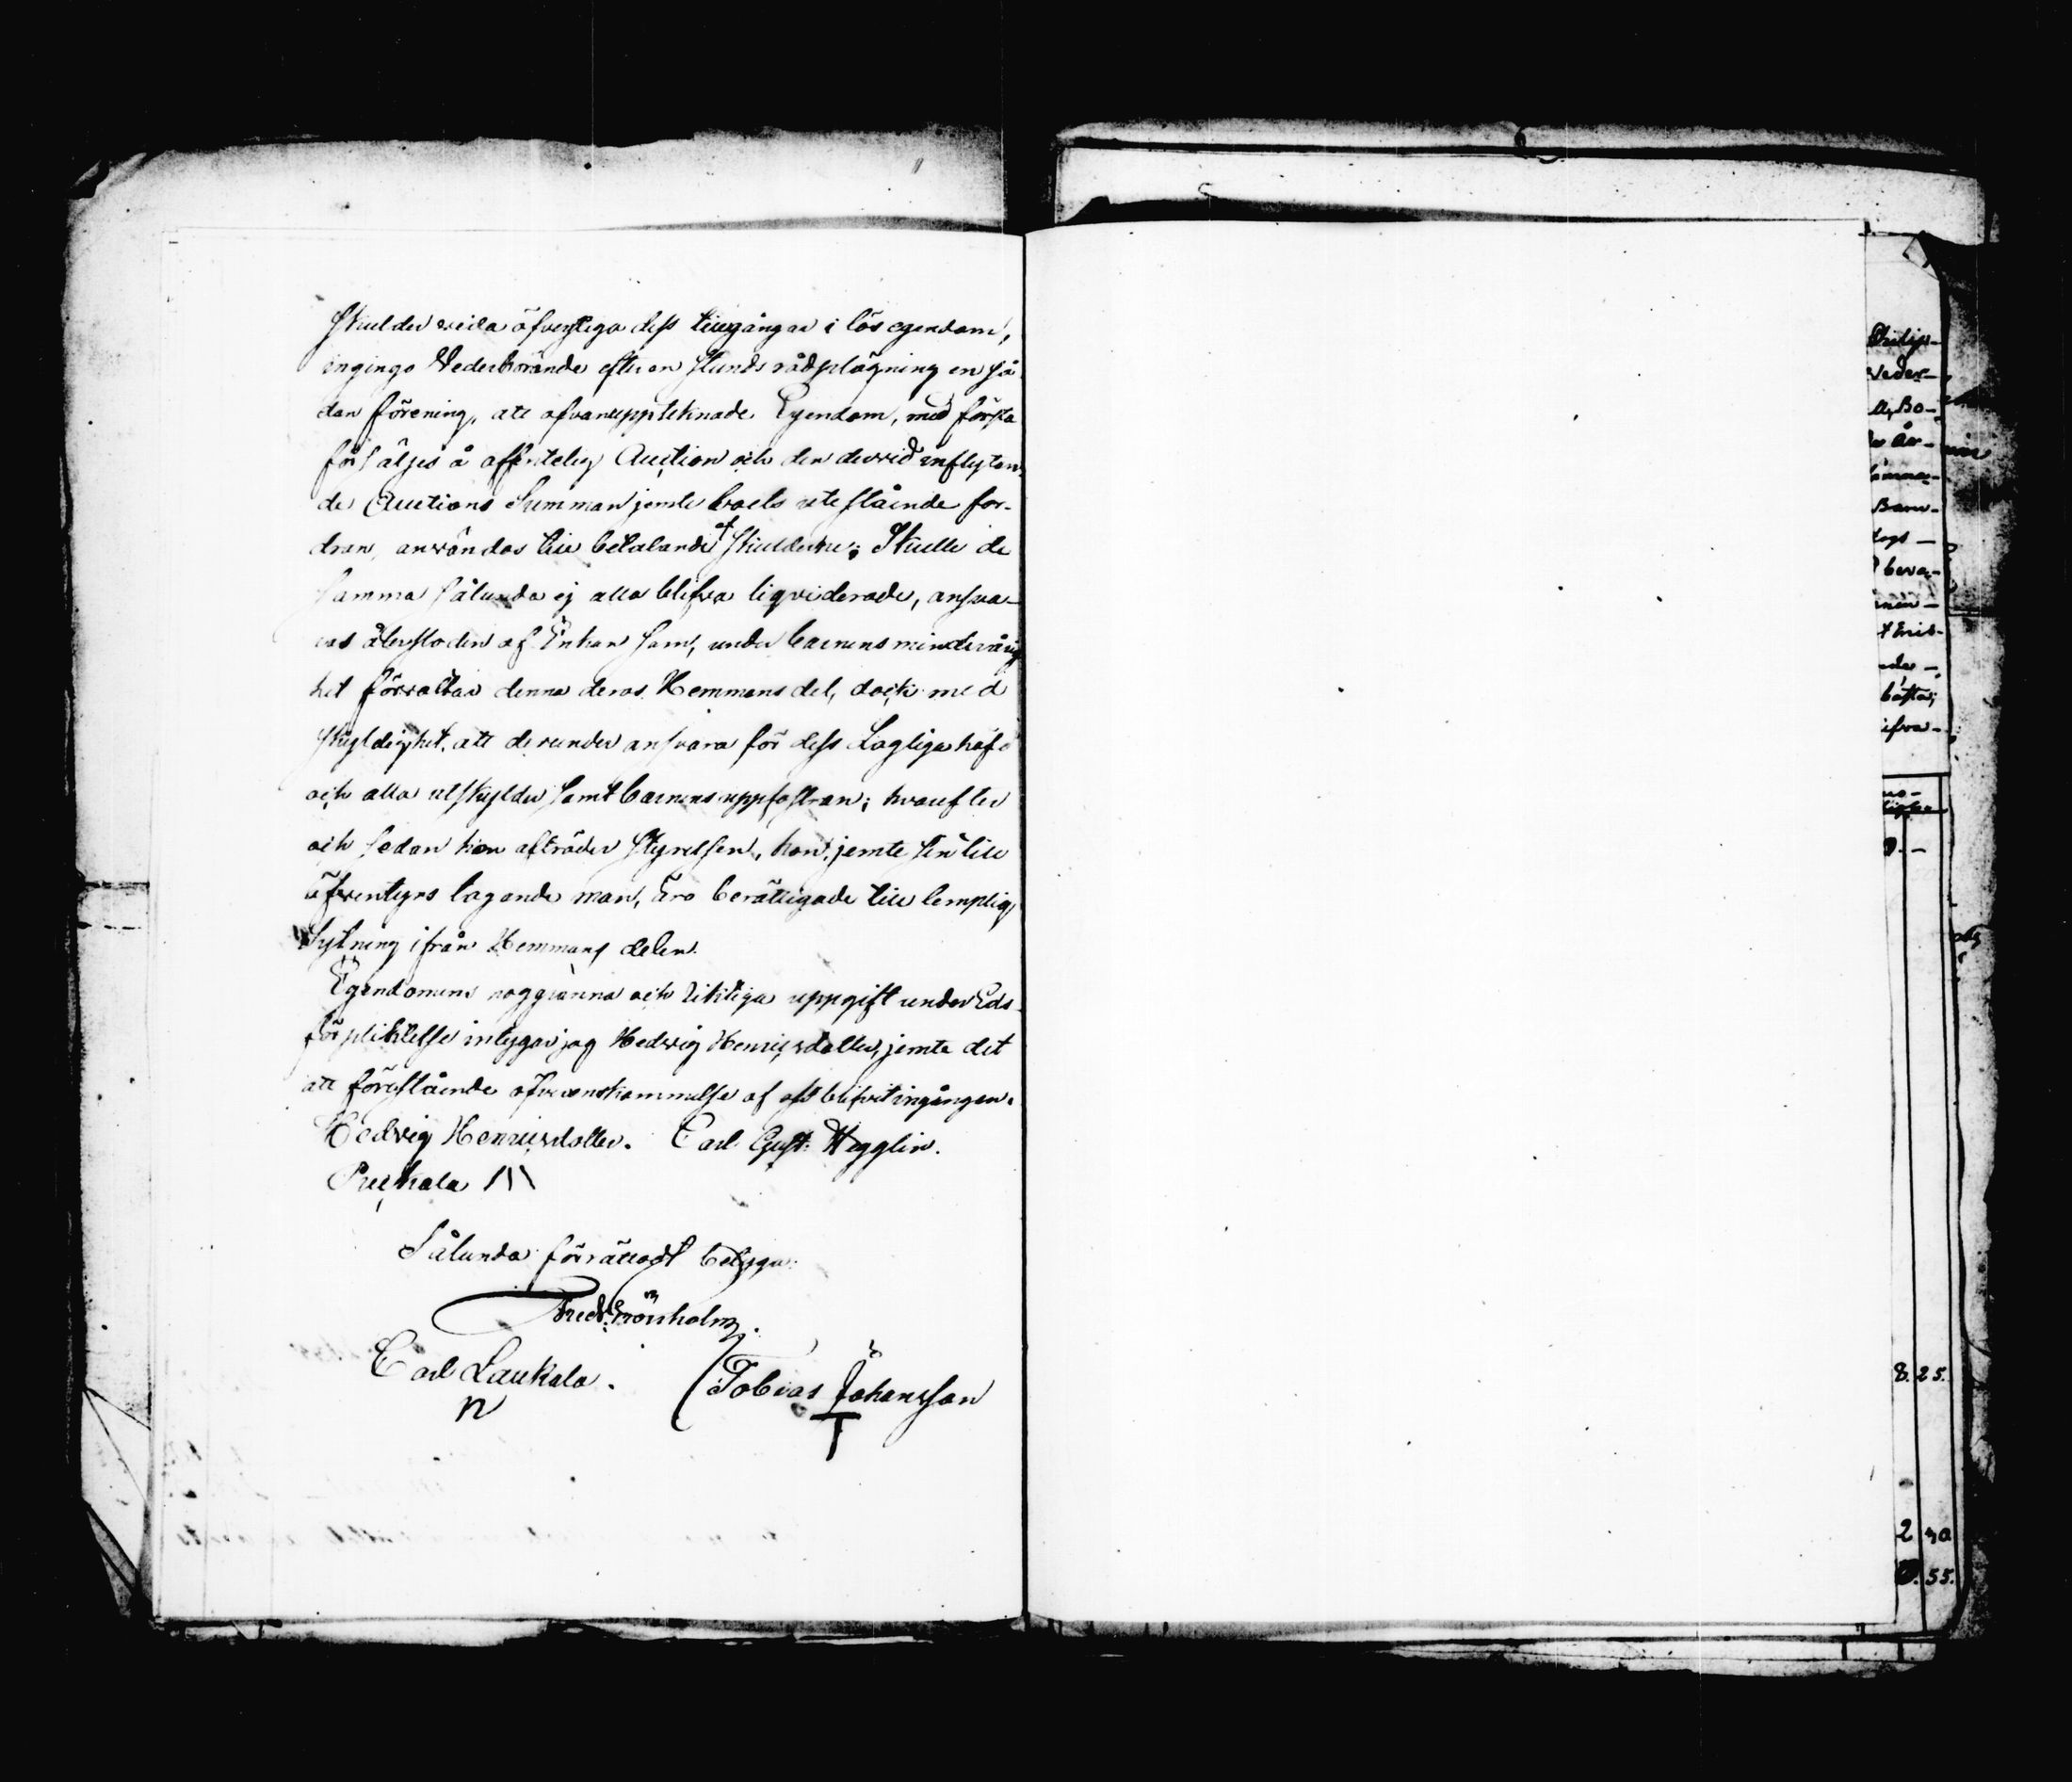 Skulder vida öfverstiga dess tillgångar i lös egendom,
ingingo Vederbörande efter en stunds rådplägning en så
dan förening, att ofvanuppteknade Egendom, med första
försäljes å offentelig Auction och den dervid inflytan-
de Auctions Summan jemte boets utestående for-
dran, användas till betalande af Skulderne; Skulle de
samma sålunda ej alla blifva liqviderade, ansva-
ras återstoden af Enkan som, under barnens minderårig
het förvaltar denna deras Hemmans del, dock med
skyldighet att derunder ansvara för dess Lagliga häfd
och alla utskylder samt barnens uppfostran; hvarefter
och sedan hon afträder styrelsen, hon, jemte sin till
äfventyrs tagande man, äro berättigade till lemplig
Sytning ifrån Hemmans delen.
Egendomens noggranna och riktiga uppgift under Eds
förpliktelse intygar jag Hedvig Henricsdotter, jemte det
att förestående öfverenskommelse af oss blifvit ingången.
Hedvig Henricsdotter. Carl Gust: Wegglin.
Sålunda förrättadt betyga:
Fredr: Grönholm.
Carl Laukala. Tobias Johansson
n T
Veder-
Bo-
år-
Barn-
bästa;
8. 25.
2 40
55.